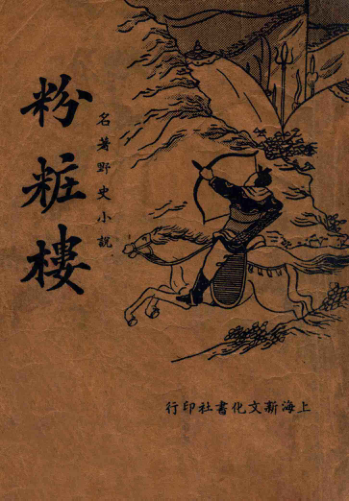 粉粧樓
名著野史小說
上海新文化書社印行